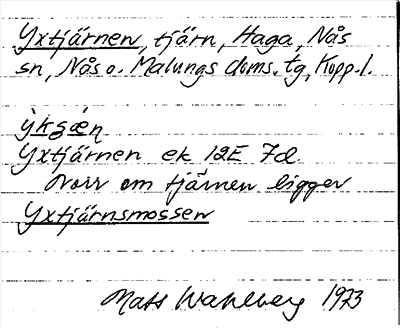 Yxtjärnen, tjärn, Haga, Nås
sn, Nås o. Malungs doms. tg, Kopp. l.
Yxtjärnen ek 12E 7d
Norr om tjärnen ligger
Yxtjärnsmossen
Mats Wahlberg 1973